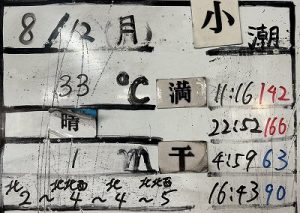 8/12(月) 小潮
33℃ 満 11:16 142
晴 22:52 166
1m 干 4:59 63
北 北北西 北 北北西
2～4～4～5 16:43 90